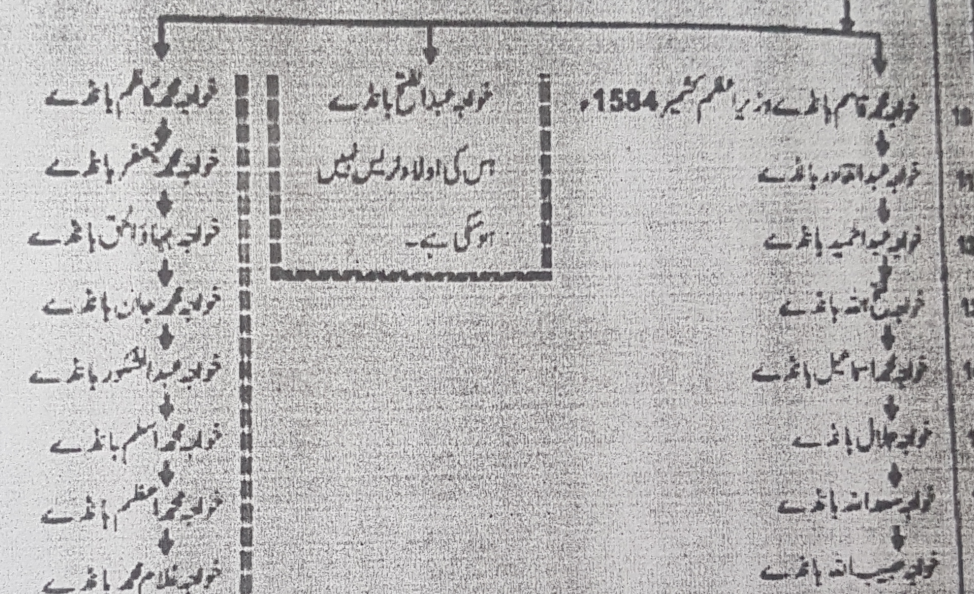 خواجہ محمد قاسم بانڈے وزیراعظم کشمیر 1584ء
خواجہ عبدالقادر بانڈے
خواجہ عبدالحمید بانڈے
خواجہ فتح اللہ بانڈے
خواجہ محمد اسماعیل بانڈے
خواجہ جلال بانڈے
خواجہ سعد اللہ بانڈے
خواجہ حبیب اللہ بانڈے
خواجہ عبدالفتح بانڈے
اس کی اولاد ٹریس نہیں
ہوسکی ہے۔
خواجہ محمد کاظم بانڈے
خواجہ محمد جعفر بانڈے
خواجہ بہاؤالحق بانڈے
خواجہ محمد جان بانڈے
خواجہ عبدالشکور بانڈے
خواجہ محمد اسلم بانڈے
خواجہ محمد اعظم بانڈے
خواجہ غلام محمد بانڈے